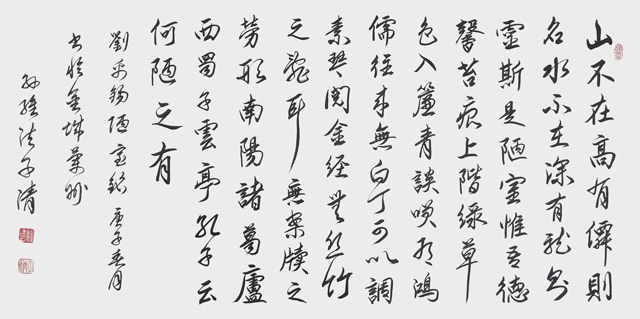 山不在高有僊則
名水不在深有龍則
靈斯是陋室惟吾德
馨苔痕上階緑草
色入簾青談笑有鴻
儒往來無白丁可以調
素琴閱金經無丝竹
之亂耳無案牘之
勞形南陽諸葛廬
西蜀子雲亭孔子云
何陋之有
劉禹錫陋室銘 庚子春月
書於金城蘭州
子清